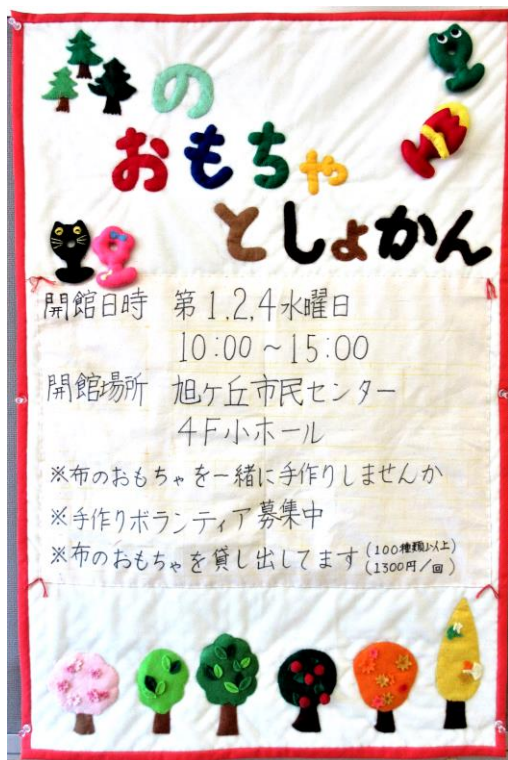 森の
おもちゃ
としょかん
開館日時 第1,2,4水曜日
10:00~15:00
開館場所 旭ケ丘市民センター
4F小ホール
※布のおもちゃを一緒に手作りしませんか
※手作りボランティア募集中
※布のおもちゃを貸し出してます(100種類以上)
(1300円/回)